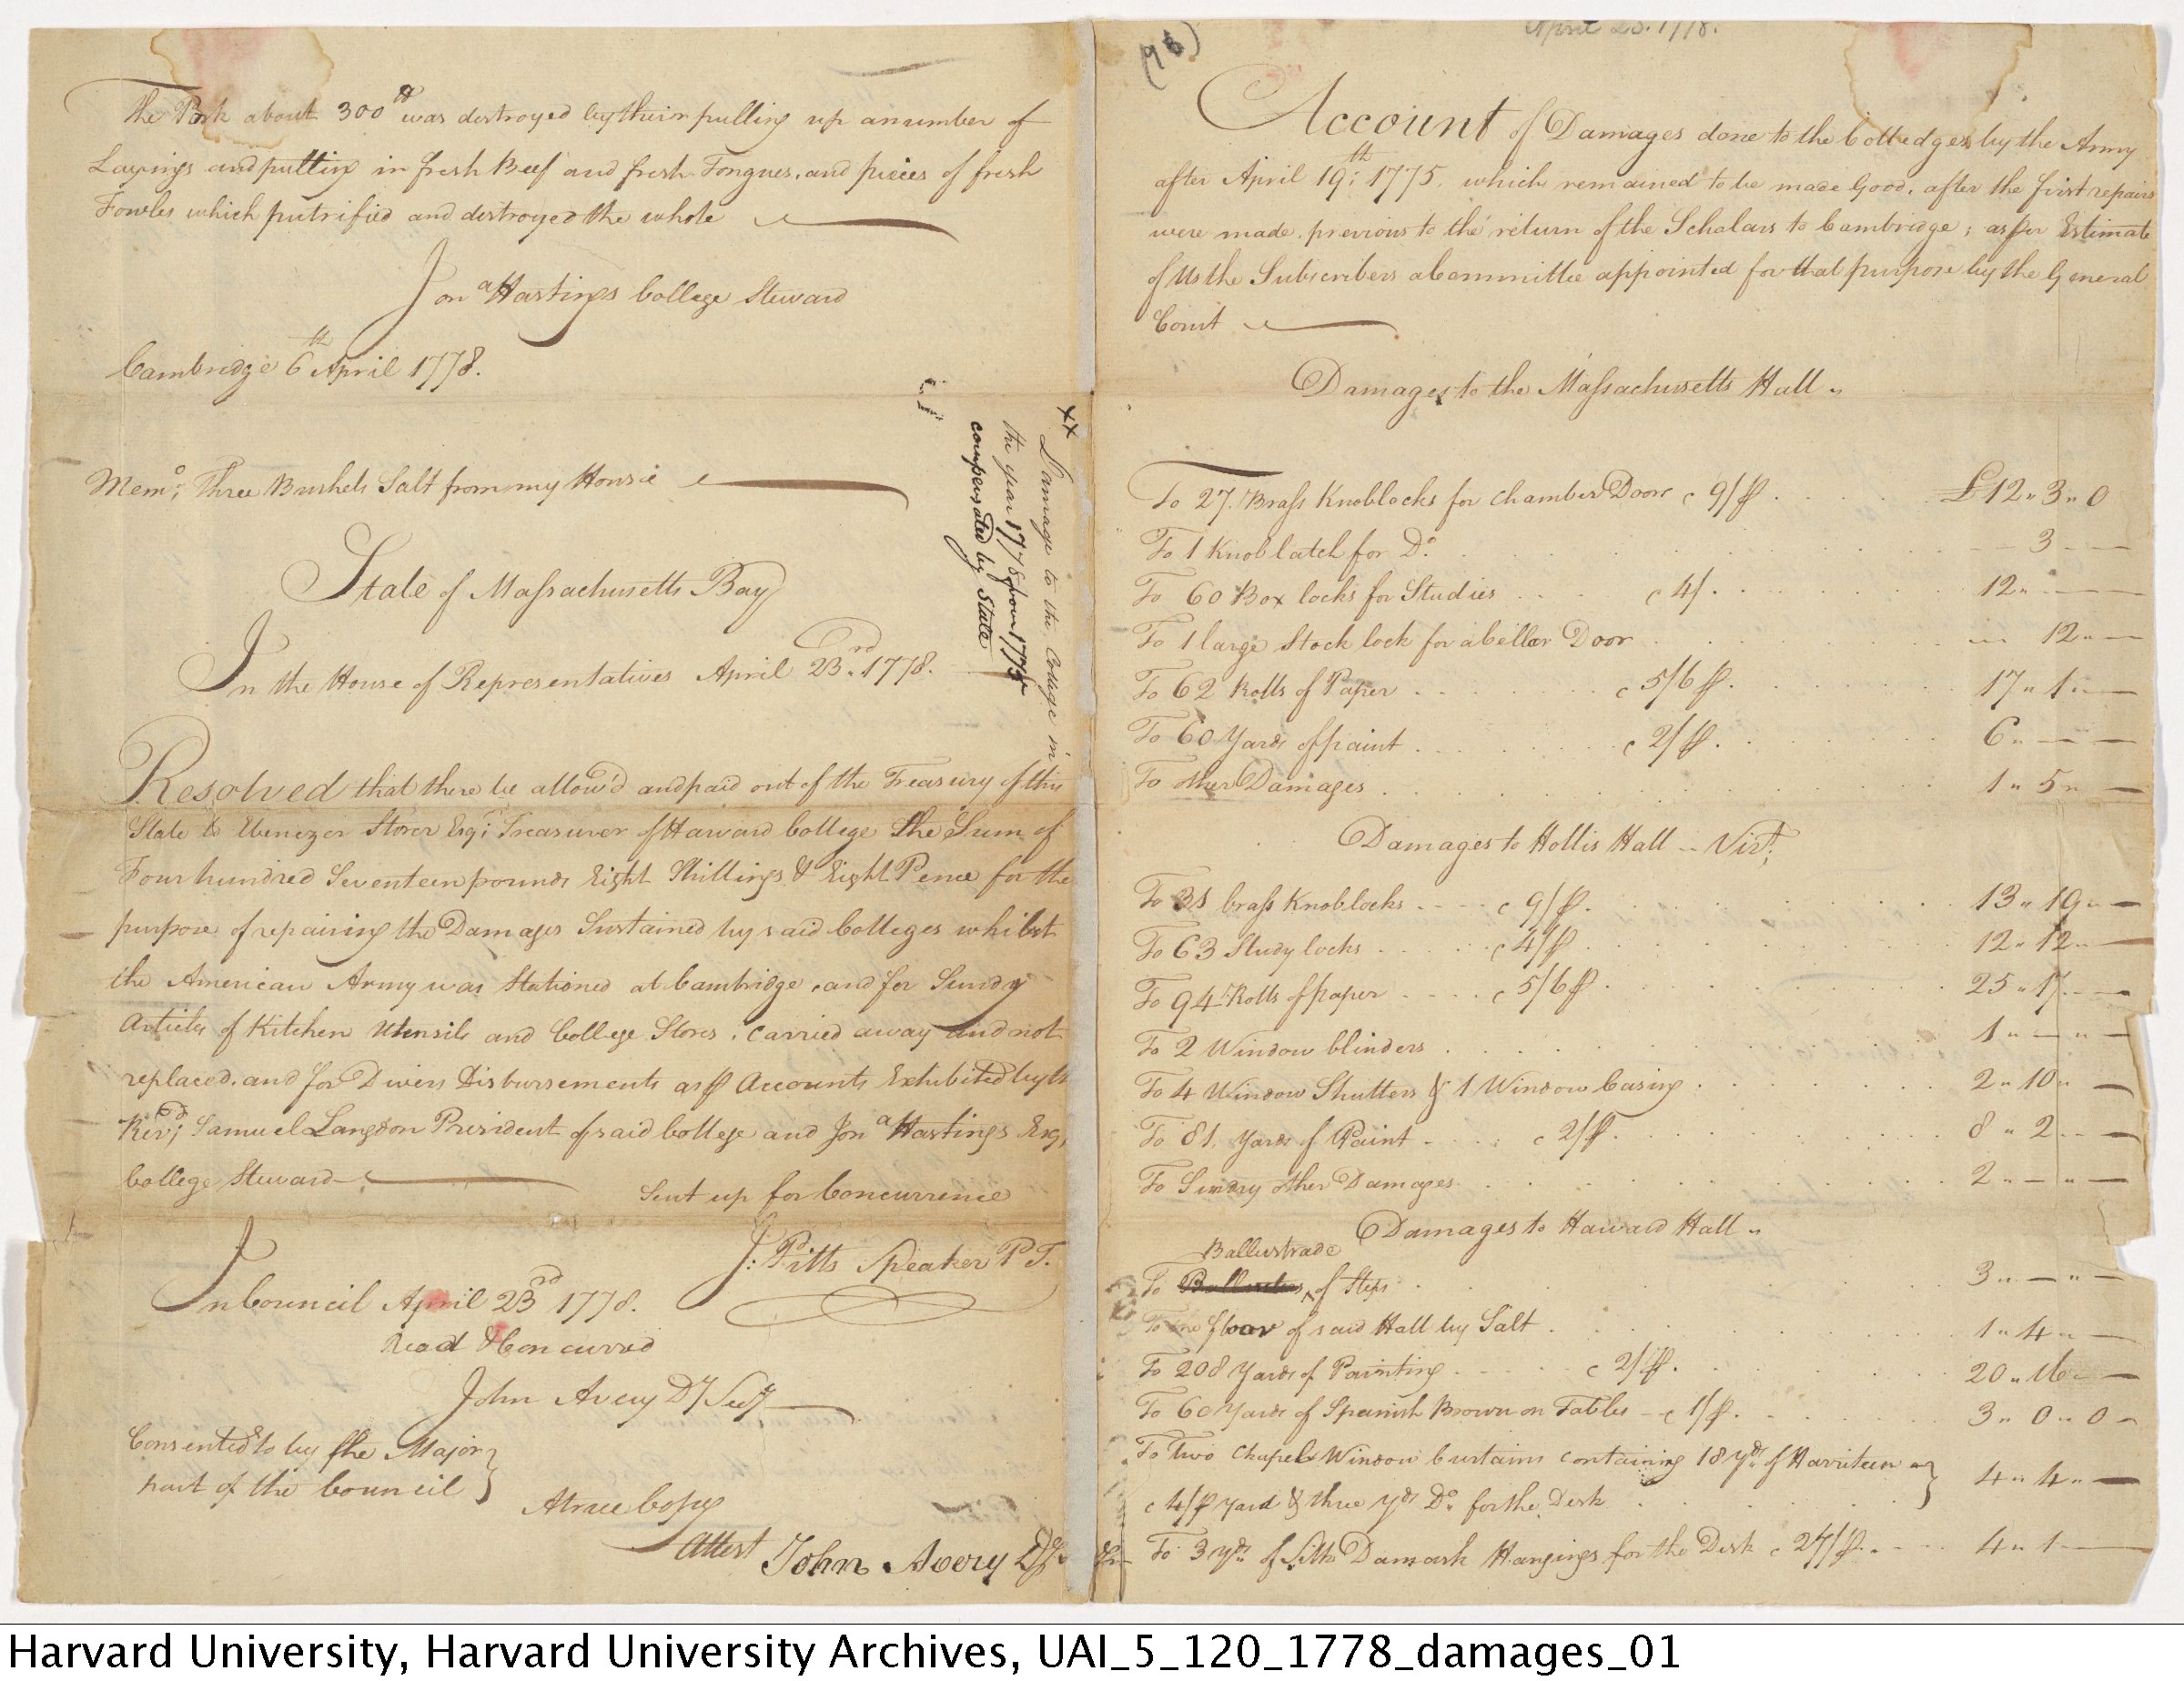 The Pork about 300 ℔ was destroyed by their pulling up a number of
Layings and putting in fresh Beef and fresh Tongues, and pieces of fresh
Fowles which putrified and destroyed the whole
Jon a Hastings College Steward
Cambridge 6th April 1778.
Memo; Three Bushels Salt from my House
State of Massachusetts Bay
In the House of Representatives April 23.rd 1778.
Resolved that there be allow'd and paid out of the Treasury of this
State to Ebenezer Storer Esqr; Treasurer of Harvard College the Sum of
Four hundred Seventeen pounds Eight Shillings & Eight Pence for the
purpose of repairing the Damages Sustained by said Colleges whilst
the American Army was Stationed at Cambridge, and for Sundry
Articles of Kitchen Utensils and College Stores, carried away and not
replaced, and for Divers Disbursements as ⅌ Accounts Exhibited by
Revd; Samuel Langdon President of said College and Jon a Hastings Esq,
College Steward
Sent up for Concurrence
J: Pitts Speaker P T.
In Council April 23d 1778.
Read & Concurred
John Avery Dy Secy
Consented to by the Major
part of the Council
A true Copy
Attest John Avery Dy Sy
xx
Damage to the College in
the year 1778 from 1775
compensated by State
(98)
April 23. 1778.
Account of Damages done to the Colledges by the Army
after April 19th; 1775. which remained to be made Good, after the first repairs
were made, previous to the return of the Scholars to Cambridge; as per Estimate
of Us the Subscribers a Committee appointed for that purpose by the General
Court
Damages to the Massachusetts Hall „
To 27 Brass Knoblocks for chamber Doors c 9/⅌ £12 „ 3 „ 0
To 1 Knob latch for Do. 3
To 60 Box locks for Studies c 4/. 12 „
To 1 large Stock lock for a Celler Door 12 „
To 62 Rolls of Paper c 5/6 ⅌. 17 „ 1
To 60 Yards of paint c 2/⅌. 6 „
To other Damages 1 „ 5 „
Damages to Hollis Hall „ Vizt;
To 31 brass Knoblocks c 9/⅌. 13 „ 19 „
To 63 Study locks c 4/⅌ 12 „ 12 „
To 94 Rolls of paper c 5/6 ⅌ 25 „ 17
To 2 Window blinders 1 „
To 4 Window Shutters & 1 Window Casing 2 „ 10 „
To 81. Yards of Paint c 2/⅌. 8 „ 2
To Sundry other Damages 2 „
Damages to Harvard Hall „
Ballustrade
To of Steps 3 „
To one floor of said Hall by Salt 1 „ 4 „
To 208 Yards of Painting c 2/⅌. 20 „ 16
To 60 Yards of Spanish Brown on Tables c 1/⅌. 3 „ 0 „ 0
To Two Chapel Window Curtains containing 18 Yds of Harriteen 4 „ 4 „
c 4/⅌ Yard & three yds Do. for the Desk
To 3 yds of Silk Damask Hangings for the Desk c 27/⅌. 4 „ 1
Harvard University, Harvard University Archives, UAI_5_120_1778_damages_01